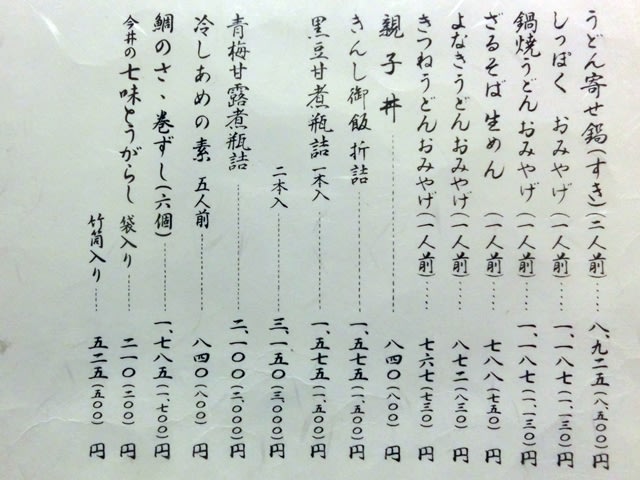 うどん寄せ鍋(すき)(二人前)‥‥八、九二五(八、五〇〇)円
しっぽく おみやげ(一人前)‥‥一、一八七(一、一三〇)円
鍋焼うどん おみやげ(一人前)‥‥一、一八七(一、一三〇)円
ざるそば 生めん (一人前)‥‥七八八(七五〇)円
よなきうどんおみやげ(一人前)‥‥八七二(八三〇)円
きつねうどんおみやげ(一人前)‥‥七六七(七三〇)円
親子丼‥‥八四〇(八〇〇)円
きんし御飯 折詰‥‥一、五七五(一、五〇〇)円
黒豆甘煮瓶詰 一本入‥‥一、五七五(一、五〇〇)円
二本入‥‥三、一五〇(三、〇〇〇)円
青梅甘露煮瓶詰‥‥二、一〇〇(二、〇〇〇)円
冷しあめの素 五人前‥‥八四〇(八〇〇)円
鯛のさゝ巻ずし(六個)‥‥一、七八五(一、七〇〇)円
今井の七味とうがらし 袋入り‥‥二一〇(二〇〇)円
竹筒入り‥‥五二五(五〇〇)円